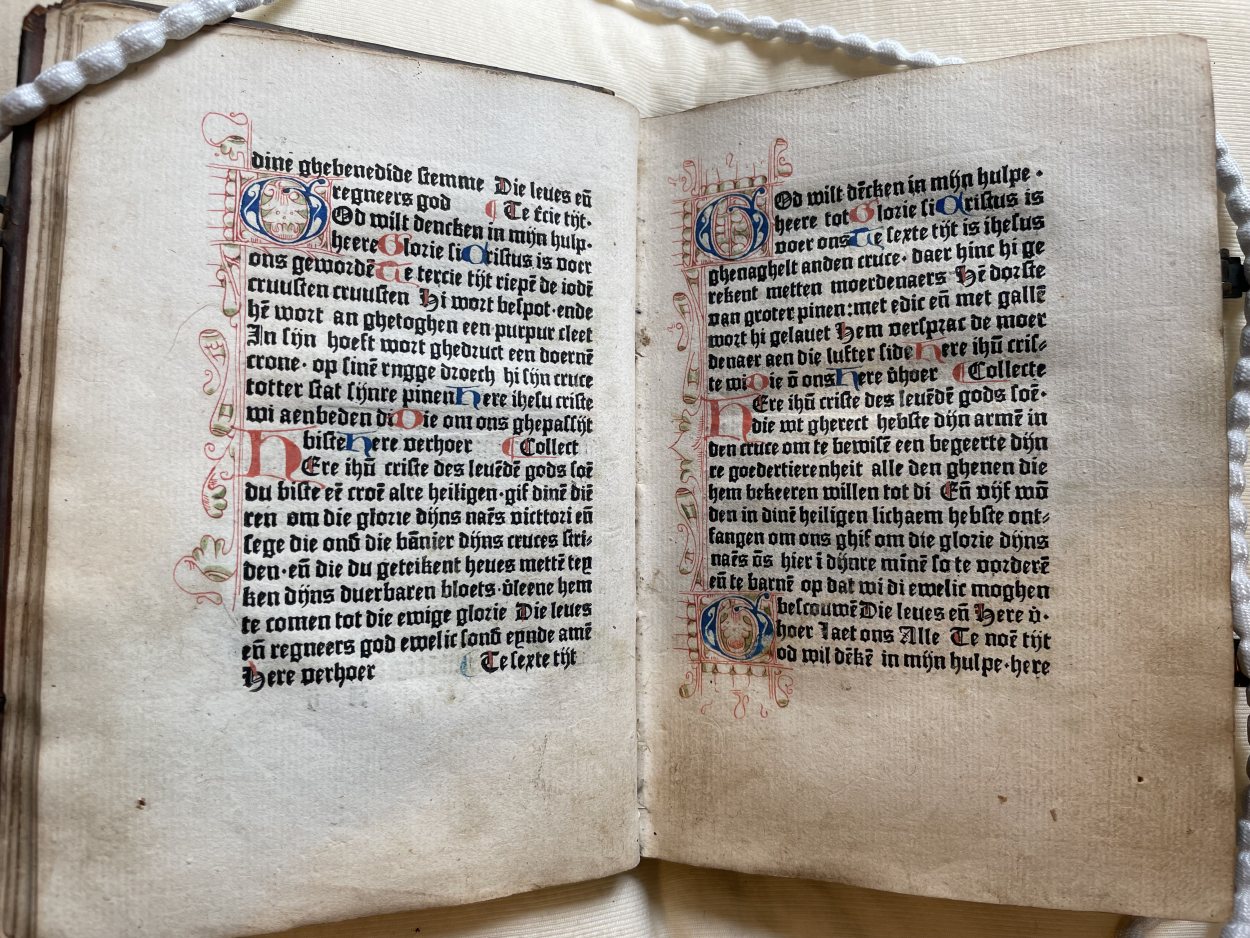 dinē ghebenedide stemme Die leues eñ
regneers god Te t̄cie tijt·
GOd wilt dencken in mijn hulp·
heere Glorie si Cristus is voer
ons gewordē Te tercie tijt riepē de iodē
cruusten cruusten Hi wort bespot·ende
hē wort an ghetoghen een purpur cleet
In sijn hoeft wort ghedruct een doernē
crone· op sinē rngge droech hi sijn cruce
totter stat sijnre pinen Here ihesu criste
wi aenbeden di Die om ons ghepassijt
histe Here verhoer Collect
HEre ihū criste des leuēdē gods soē
du biste eē croē alre heiligen·gif dinē diē
ren om die glorie dijns naēs victtori eñ
sege die onð die bānier dijns cruces stri⸗
den·eñ die du geteikent heues mettē tey
ken dijns duerbaren bloets·v̄leene hem
te comen tot die ewige glorie Die leues
eñ regneers god ewelic sonð eynde amē
Here verhoer Te sexte tijt
GOd wilt dēcken in mijn hulpe·
heere tot Glorie si Cristus is
voer ons Te sexte tijt is ihesus
ghenaghelt anden cruce·daer hinc hi ge
rekent metten moerdenaers Hē dorste
van groter pinen:met edic eñ met gallē
wort hi gelauet Hem versprac de moer
denaer aen die lufter side Here ihū cris⸗
te wi Die ō ons Here v̄hoer Collecte
HEre ihū criste des leuēdē gods soē·
die wt gherect hebste dijn armē in
den cruce om te bewisē een begeerte dijn
re goedertierenheit alle den ghenen die
hem bekeeren willen tot di Eñ vijf wō
den in dinē heiligen lichaem hebste ont⸗
fangen om ons ghif om die glorie dijns
naēs ōs hier i dijnre minē so te vorderē
eñ te barnē op dat wi di ewelic moghen
bescouwē Die leues eñ Here v̄·
hoer Iaet ons Alle Te noē tijt
God wil dēkē in mijn hulpe·here